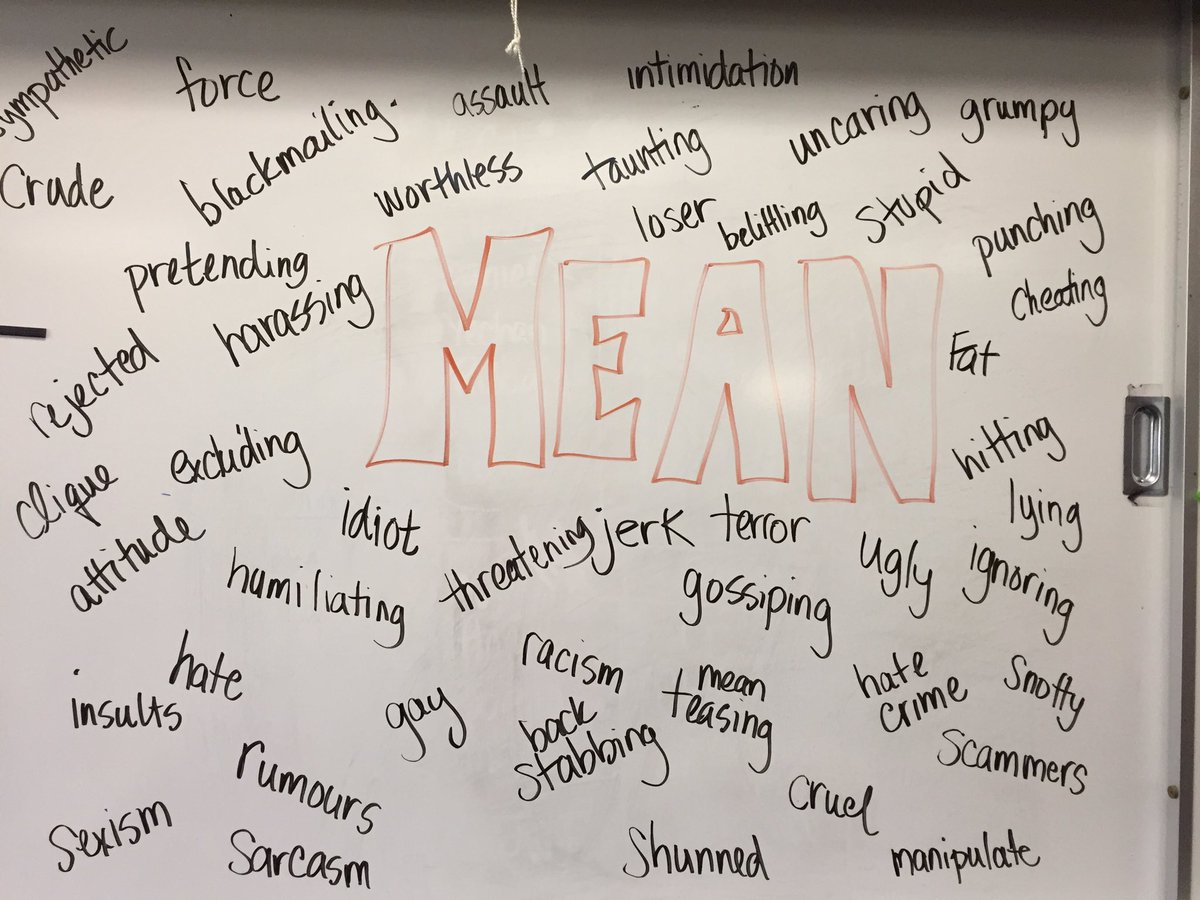 sympathetic
force
assault
intimidation
blackmailing.
uncaring
grumpy
Crude
worthless
taunting
loser
belittling
stupid
punching
pretending
harassing
MEAN
cheating
rejected
Fat
clique
excluding
hitting
lying
idiot
attitude
humiliating
threatening
jerk
terror
gossiping
ugly
ignoring
hate
insults
gay
racism
mean
teasing
hate
crime
Snotty
back
stabbing
rumours
Scammers
cruel
Sexism
Sarcasm
Shunned
manipulate